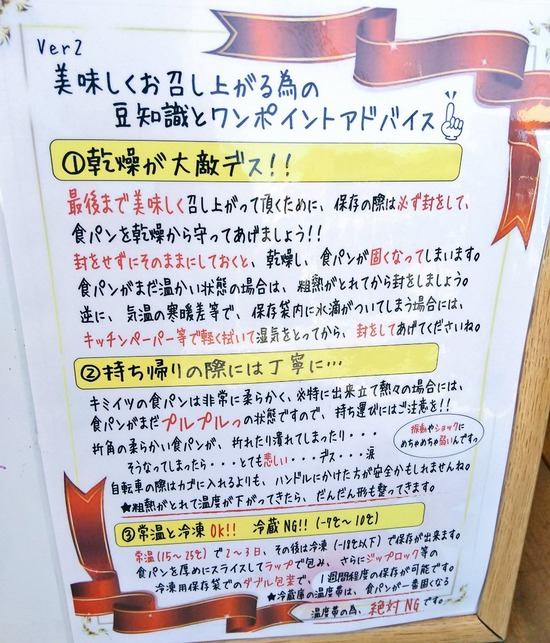 Ver2
美味しくお召し上がる為の
豆知識とワンポイントアドバイス
①乾燥が大敵デス!!
最後まで美味しく召し上がって頂くために、保存の際は必ず封をして、
食パンを乾燥から守ってあげましょう!!
封をせずにそのままにしておくと、乾燥し、食パンが固くなってしまいます。
食パンがまだ温かい状態の場合は、粗熱がとれてから封をしましょう。
逆に、気温の寒暖差等で、保存袋内に水滴がついてしまう場合には、
キッチンペーパー等で軽く拭いて湿気をとってから、封をしてあげてくださいね。
②持ち帰りの際には丁寧に…
キミイツの食パンは非常に柔らかく、※特に出来立て熱々の場合には、
食パンがまだプルプルっの状態ですので、持ち運びにはご注意を!!
折角の柔らかい食パンが、折れたり潰れてしまったり・・・
そうなってしまったら・・・とても悲しい・・・デス・・・涙
振動やショックに
めちゃめちゃ弱いんですっ
自転車の際はカゴに入れるよりも、ハンドルにかけた方が安全かもしれませんね。
★粗熱がとれて温度が下がってきたら、だんだん形も整ってきます。
③常温と冷凍OK!! 冷蔵NG!!(-7℃～10℃)
常温(15～25℃)で2～3日、その後は冷凍(-18℃以下)で保存が出来ます。
食パンを厚めにスライスしてラップで包み、さらにジップロック等の
冷凍用保存袋でのダブル包装で、1週間程度の保存が可能です。
★冷蔵庫の温度帯は、食パンが一番固くなる
温度帯の為、絶対NGです。